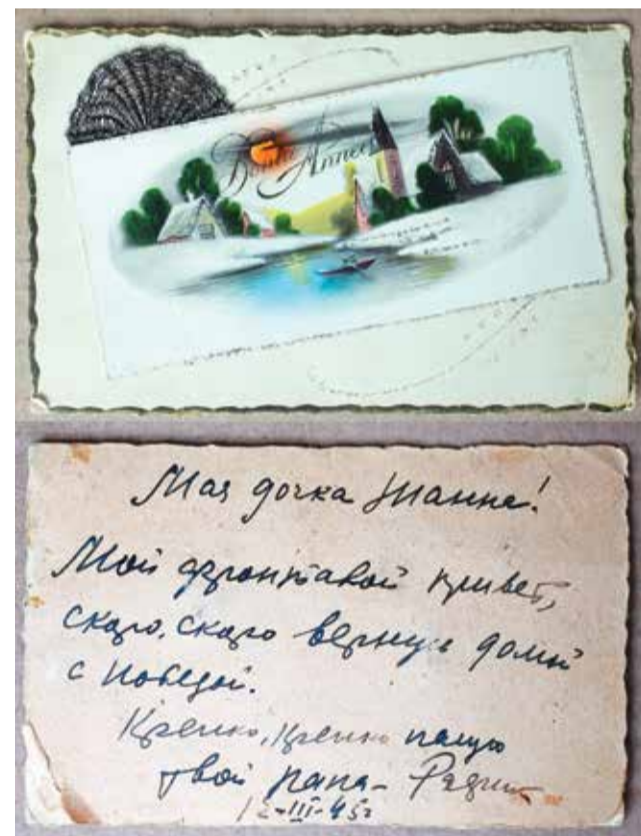 Bonne Année
Моя дочка Жанна!
Мой фронтавой привет,
скоро, скоро вернусь домой
с победой.
Крепко, Крепко
твой папа-
12-III-45г